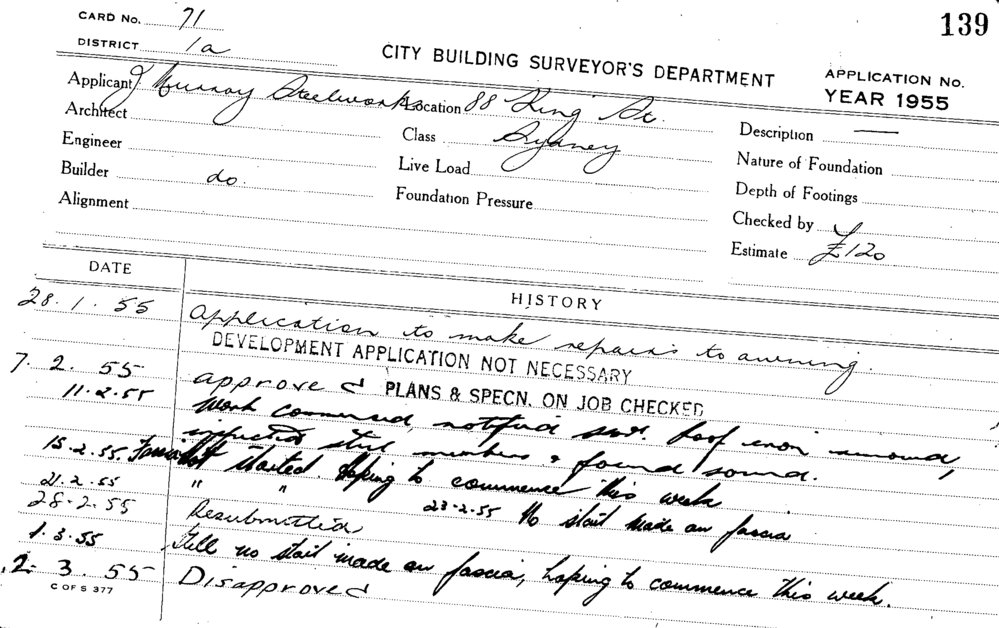 CARD No. 71
139
DISTRICT 1a
CITY BUILDING SURVEYOR'S DEPARTMENT
APPLICATION No.
YEAR 1955
Applicant J Murray Steelworks Location 88 King St. Description —
Architect Class Sydney Nature of Foundation
Engineer Live Load Depth of Footings
Builder do. Foundation Pressure Checked by
Alignment Estimate £120
DATE HISTORY
28.1.55 Application to make repairs to awning.
DEVELOPMENT APPLICATION NOT NECESSARY
7.2.55 Approved PLANS & SPECN. ON JOB CHECKED
11.2.55 Work commenced, roof iron removed,
inspected steel members & found sound.
15.2.55 Fascia not started. Hoping to commence this week
21.2.55 " " 23-2-55 No start made on fascia
28-2-55 Resubmitted
1.3.55 Still no start made on fascia, hoping to commence this week.
2.3.55 Disapproved
C OF S 377